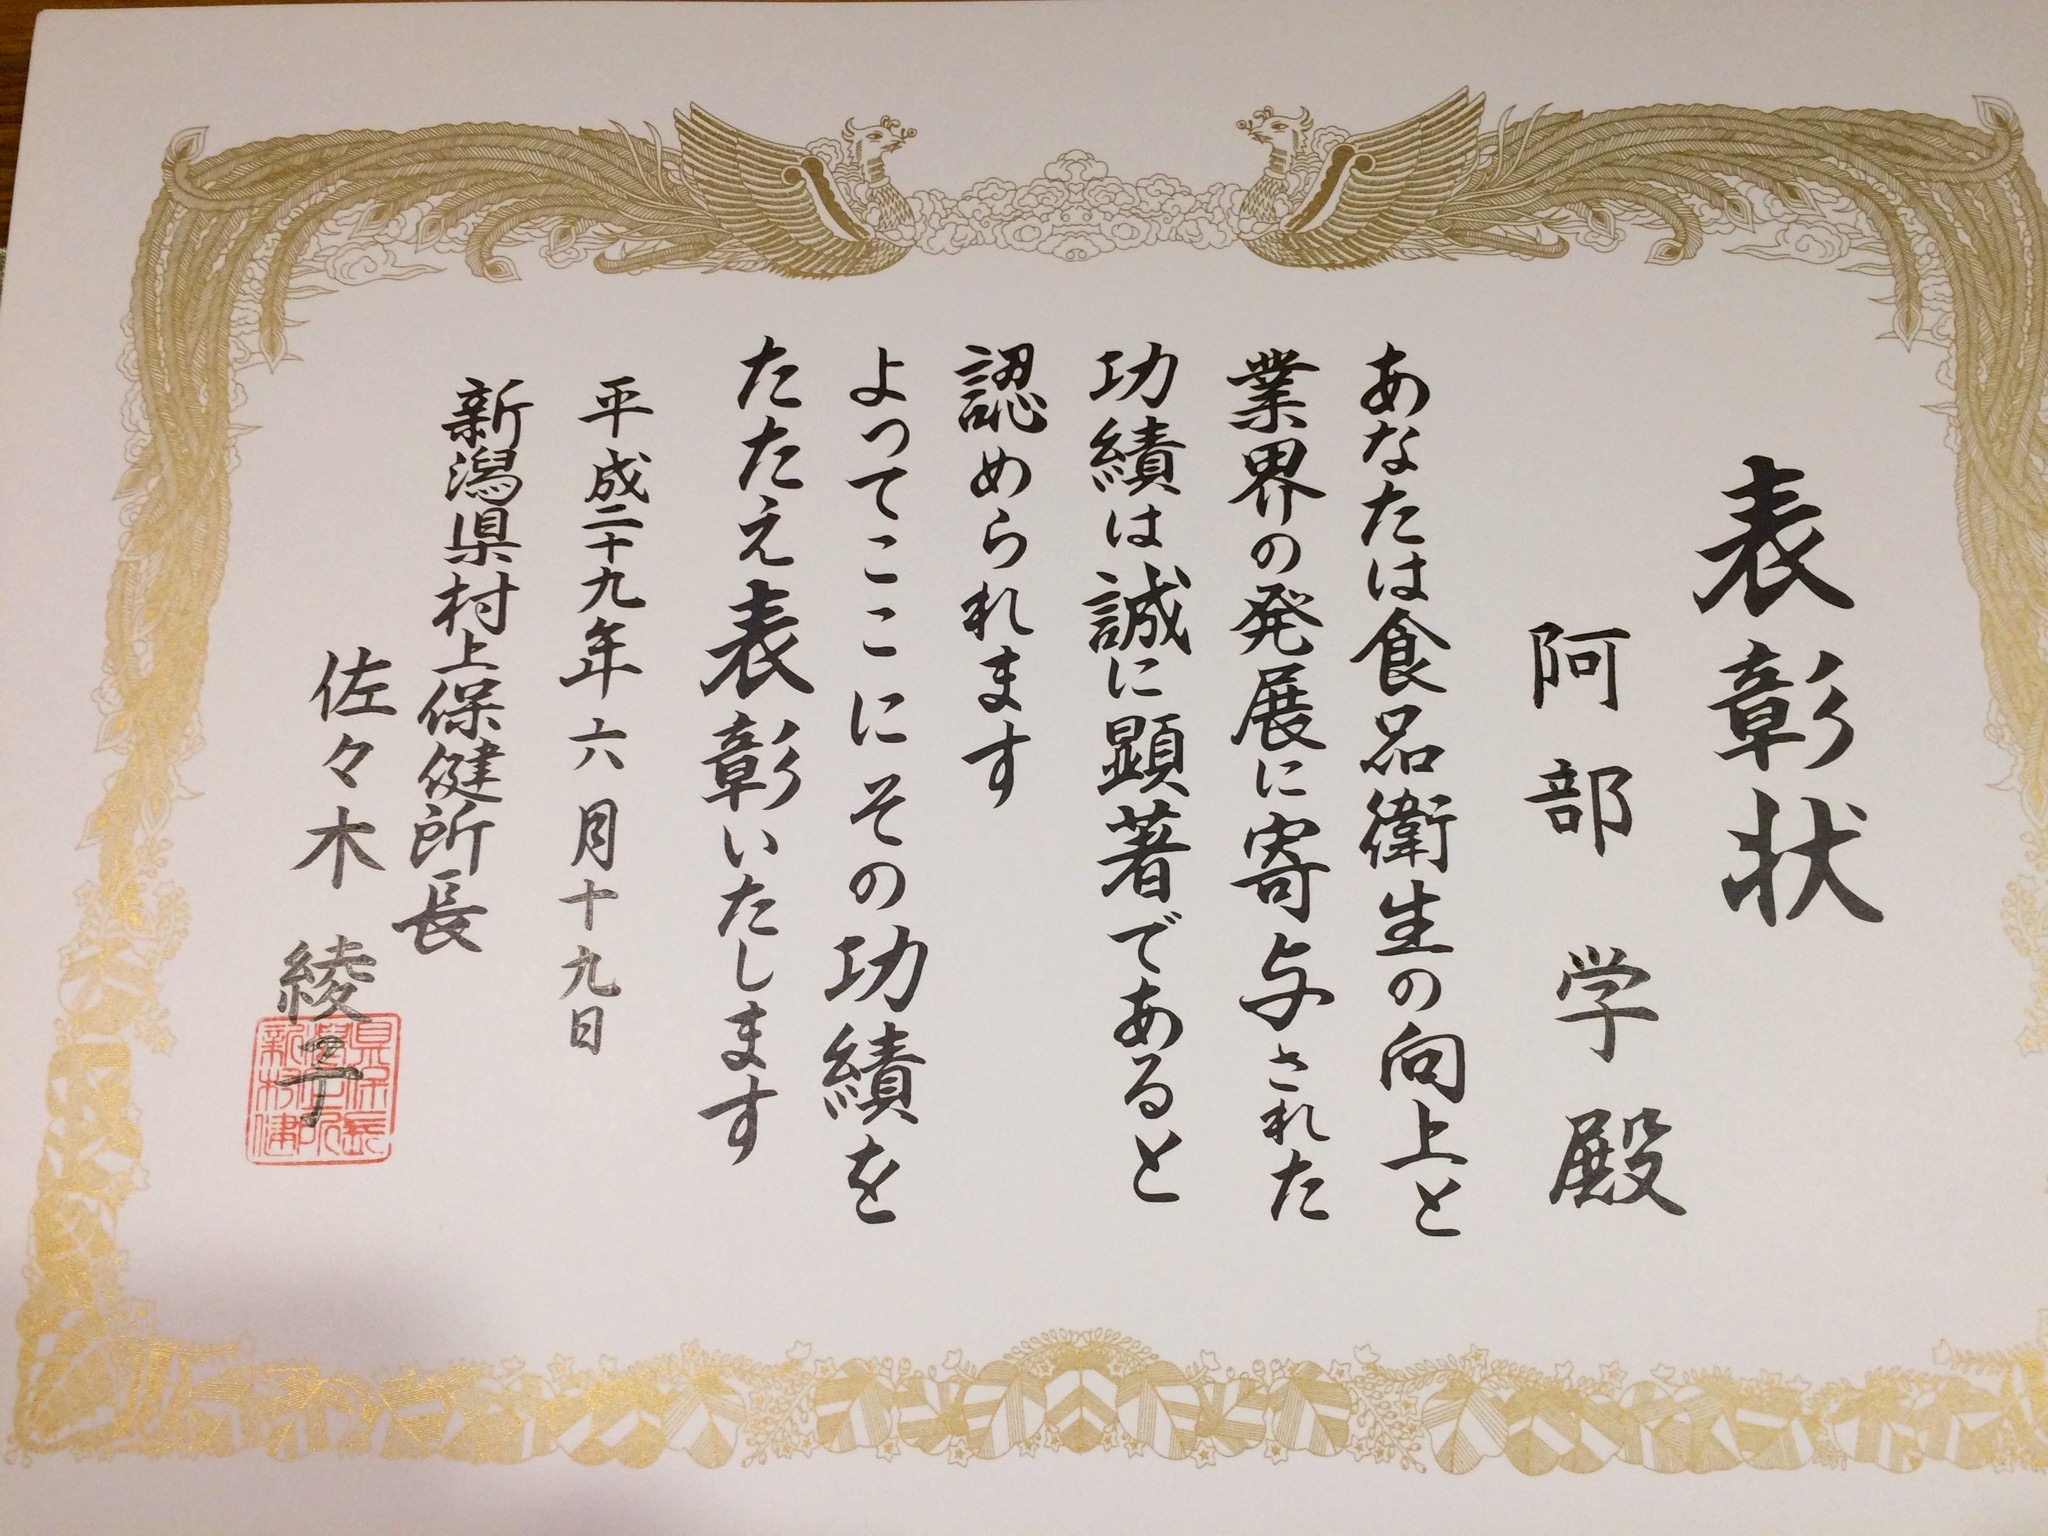 表彰状
阿部学殿
あなたは食品衛生の向上と
業界の発展に寄与された
功績は誠に顕著であると
認められます
よってここにその功績を
たたえ表彰いたします
平成二十九年六月十九日
新潟県村上保健所長
佐々木綾子